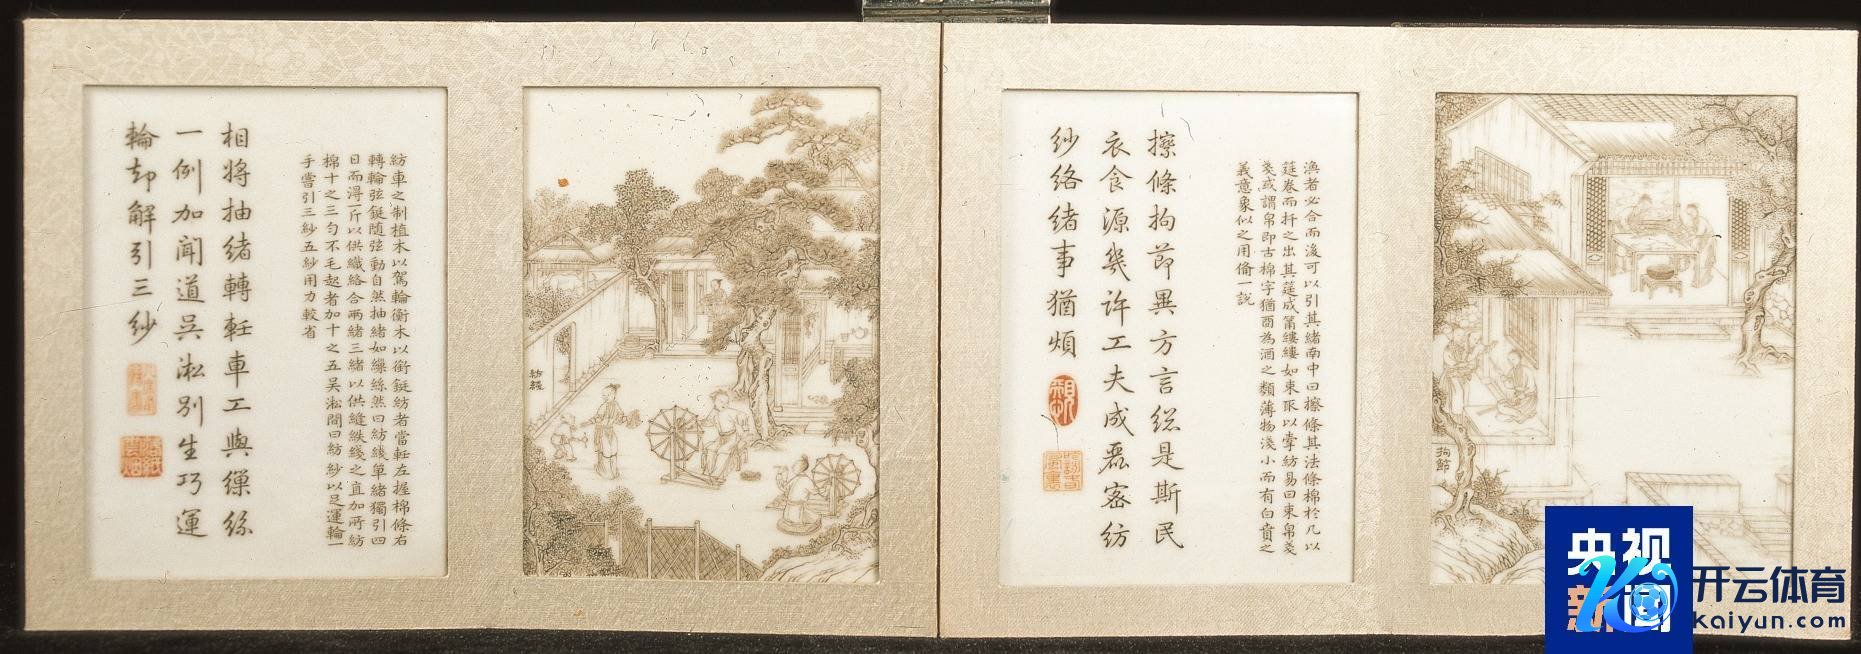 拘節
渙者必合而後可以引其緒南中曰擦條其法條棉於几以
筳卷而扞之出其筳成筩縷縷如束取以牽紡易曰束帛戔
戔或謂帛即古棉字猶酉為酒之類薄物淺小而有白賁之
義意象似之用備一說
擦條拘節異方言總是斯民
衣食源幾許工夫成磊密紡
紗絡緒事猶煩
紡線
紡車之制植木以駕輪衡木以銜鋌紡者當軠左握棉條右
轉輪弦鋌隨弦動自然抽緒如繅絲然曰紡綫單緒獨引四
日而得一斤以供織絡合兩緒三緒以供縫紩綫之直加所紡
棉十之三勻不毛起者加十之五吳淞間曰紡紗以足運輪一
手嘗引三紗五紗用力較省
相將抽緒轉軠車工與繅絲
一例加聞道吳淞別生巧運
輪却解引三紗
央视
新闻
开云体育
kaiyun.com